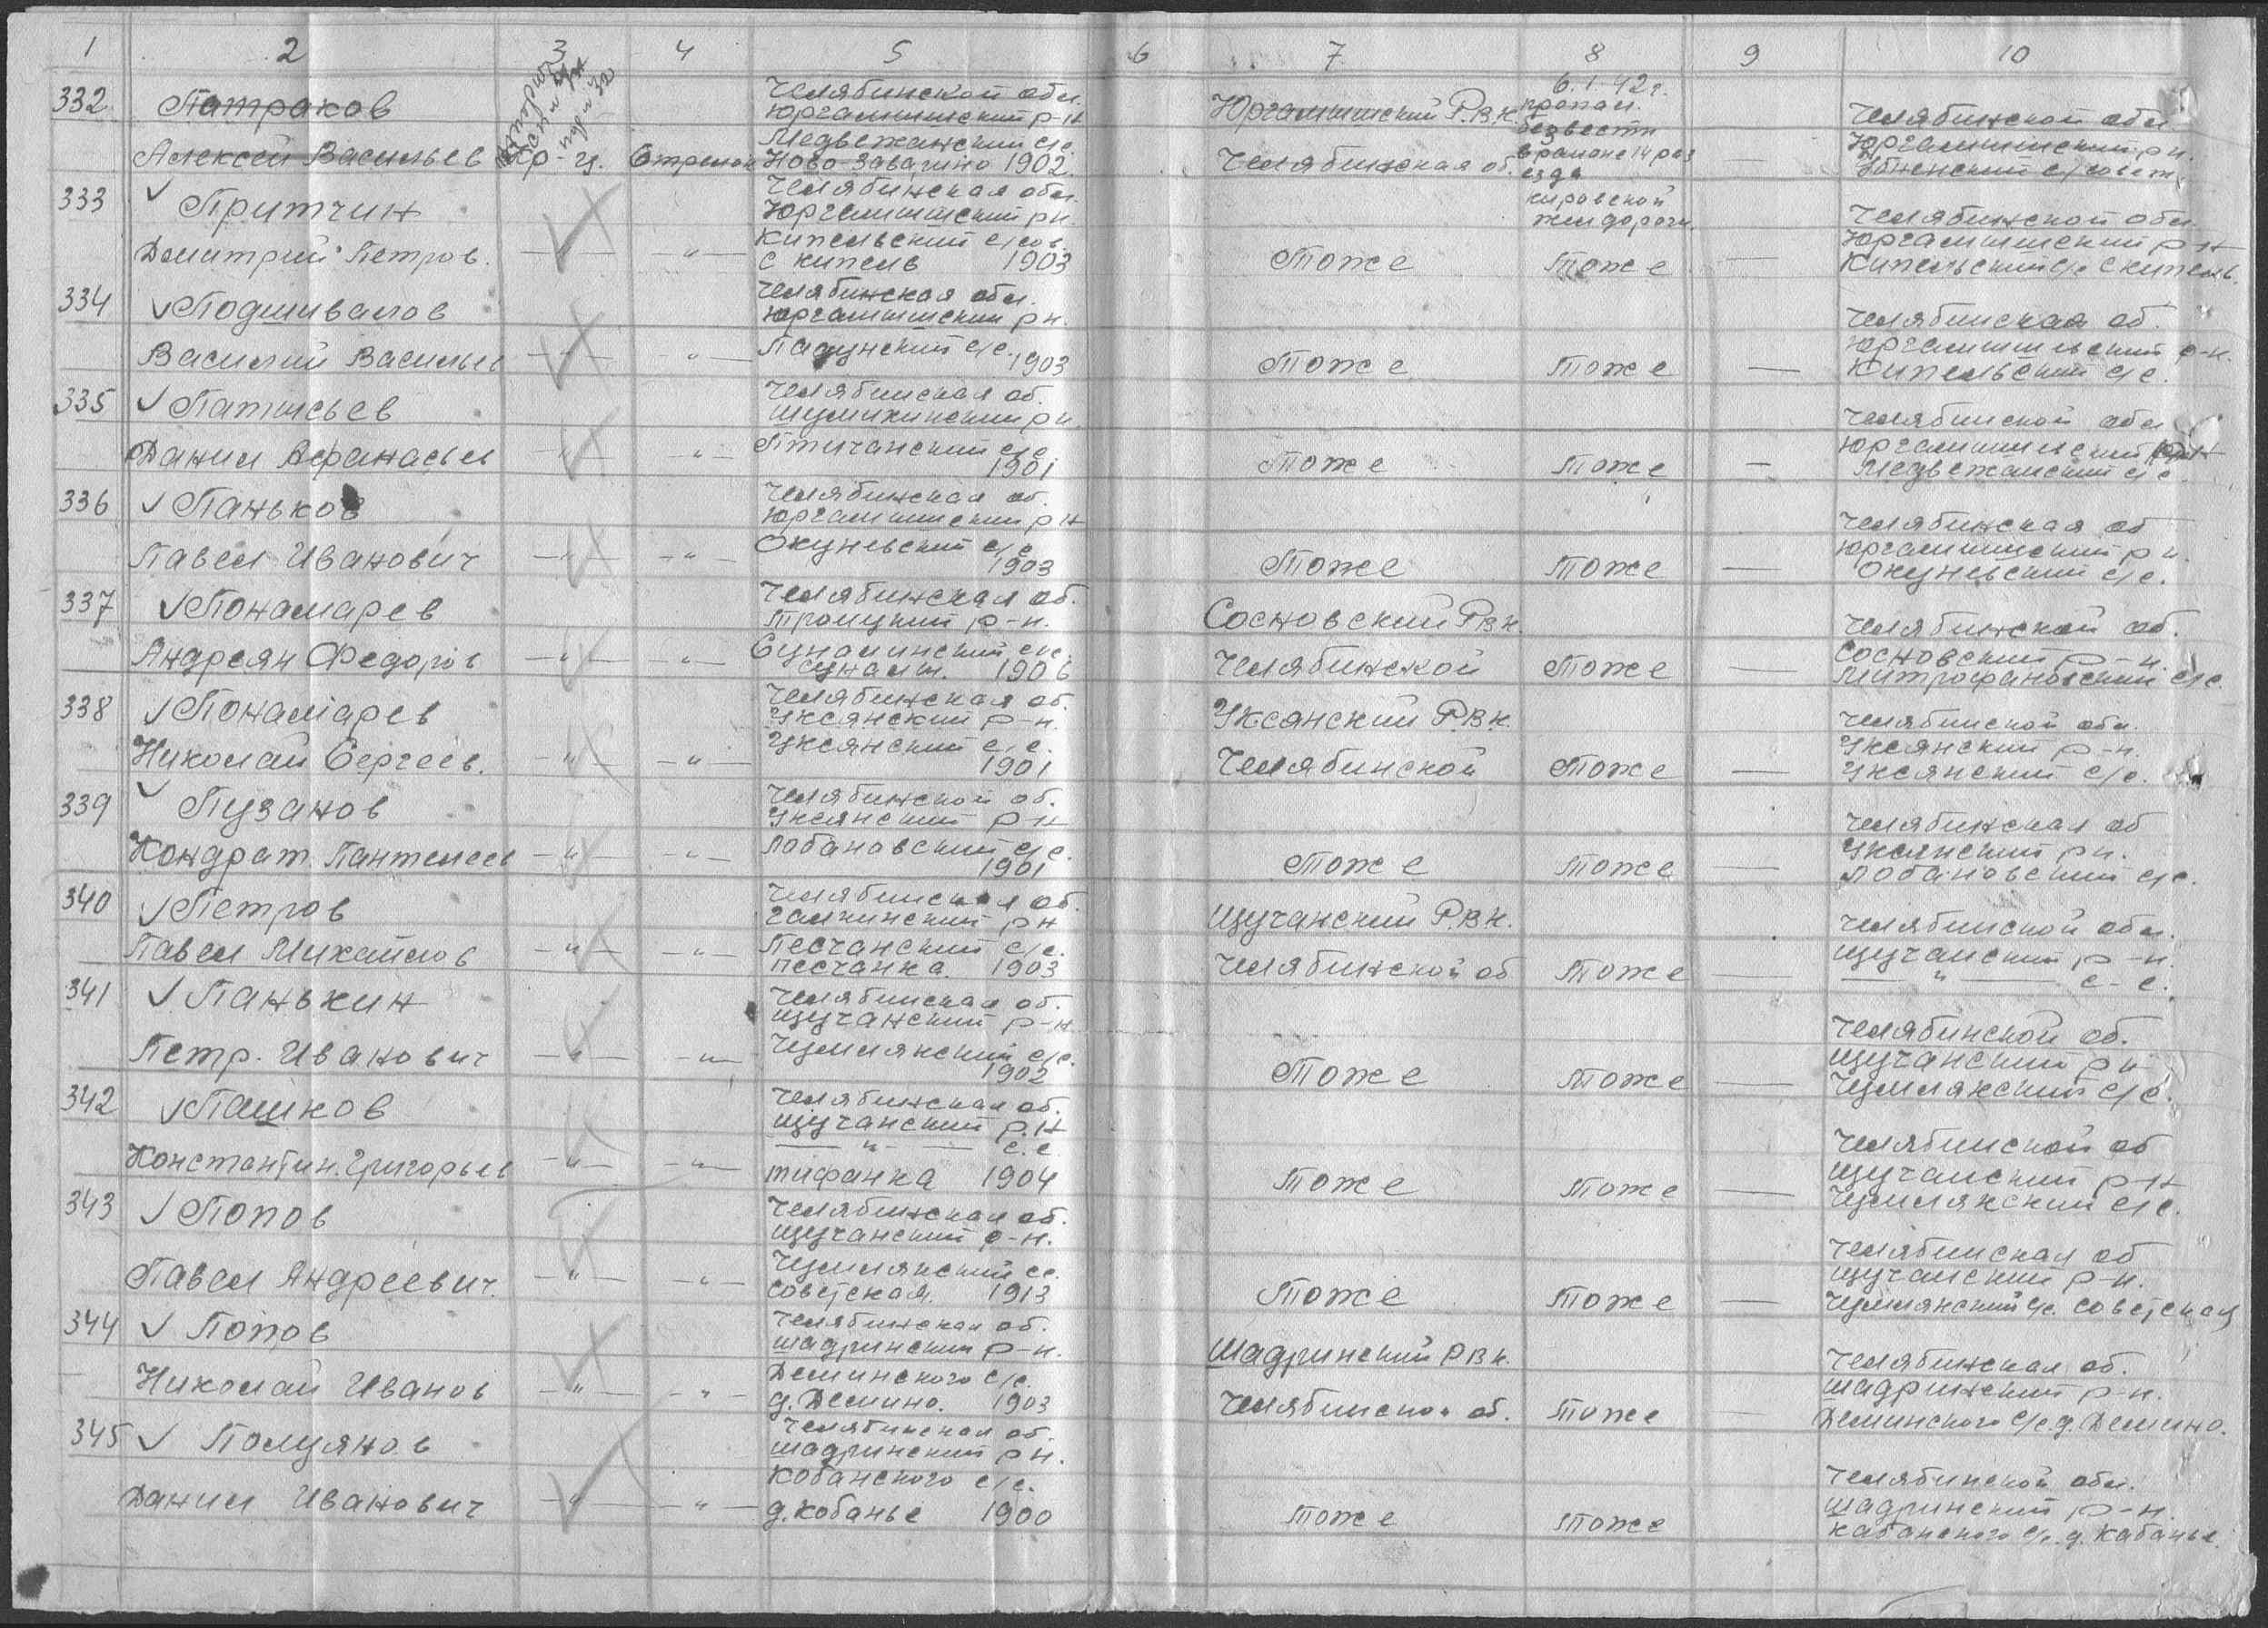 1 2 3 4 5 6 7 8 9 10
332 Патраков
Алексей Васильев Кр-ц. Стрелок
Челябинской обл.
Юргамышский р-н
Медвежанский с/с.
Ново-Завагино 1902.
Юргамышский Р.В.К.
Челябинская об.
6.1.42 г.
пропал.
безвести
в районе 14 раз
езда
кировской
жел дороги.
—
Челябинской обл
Юргамышский р н.
с/совет.
333 ✓ Притчин
Дмитрий Петров. —"— —"—
Челябинская обл.
Юргамышский р н.
Кипельский с/сов.
с кипель 1903
Тоже Тоже —
Челябинской обл.
Юргамышский р-н
Кипельский с/с с кипель.
334 ✓ Подшивалов
Василий Васильев —"— —"—
Челябинская обл.
юргамышский р н.
Падунский с/с.
1903
Тоже Тоже —
Челябинская об.
Юргамышский р-н.
Кипельский с/с.
335 ✓ Патысьев
Данил Афанасьев —"— —"—
Челябинская об.
шумихинский р н.
Птичанский с/с
1901
Тоже Тоже —
Челябинской обл
юргамышский р-н
Медвежанский с/с
336 ✓ Паньков
Павел Иванович —"— —"—
Челябинская об.
юргамышский р н
Окуневский с/с
1903
Тоже Тоже —
Челябинская об
юргамышский р н.
Окуневский с/с.
337 ✓ Понамарев
Андреян Федоров —"— —"—
Челябинская об.
Троицкий р-н.
1906
Сосновский РВК.
Челябинской Тоже —
Челябинской об.
Сосновский р-н.
Митрофановский с/с.
338 ✓ Понамарев
Николай Сергеев. —"— —"—
Челябинская об.
Уксянский р-н.
Уксянский с/с.
1901
Уксянский Р.В.К.
Челябинской Тоже —
Челябинской обл.
Уксянский р-н.
Уксянский с/с.
339 ✓ Пузанов
Кондрат. Пантелеев —"— —"—
Челябинской об.
Уксянский р-н
Лобановский с/с.
1901
Тоже Тоже —
Челябинская об
Уксянский р н.
Лобановский с/с.
340 ✓ Петров
Павел Михайлов —"— —"—
Челябинская об.
галкинский р н
Песчанский с/с.
песчанка. 1903
Щучанский Р.В.К.
Челябинской об Тоже —
Челябинской обл.
щучанский р-н.
—"— с-с.
341 ✓ Панькин
Петр. Иванович —"— —"—
Челябинская об.
щучанский р-н
Чумлякский с/с.
1902
Тоже Тоже —
Челябинской об.
щучанский р н
Чумлякский с/с.
342 ✓ Пашков
Константин. Григорьев —"— —"—
Челябинская об.
щучанский р.н
—"— с.с
тифанка 1904
Тоже Тоже —
Челябинской об
щучанский р-н
Чумлякский с/с.
343 ✓ Попов
Павел Андреевич. —"— —"—
Челябинская об.
щучанский р-н.
Чумлякский сс.
Советская. 1913
Тоже Тоже —
Челябинская об
щучанский р-н.
Чумлякский с/с. советская
344 ✓ Попов
Николай Иванов —"— —"—
Челябинская об.
шадринский р-н.
Деминского с/с.
д. Демино. 1903
Шадринский РВК.
Челябинской об. Тоже —
Челябинская об.
шадринский р-н.
Деминского с/с. д. Демино.
345 ✓ Полуянов
Данил Иванович —"— —"—
Челябинская об.
шадринский р н.
Кобанского с/с.
д. кобанье 1900
Тоже Тоже
Челябинской обл.
шадринский р-н.
Кабанского с/с. д. Кабанье.